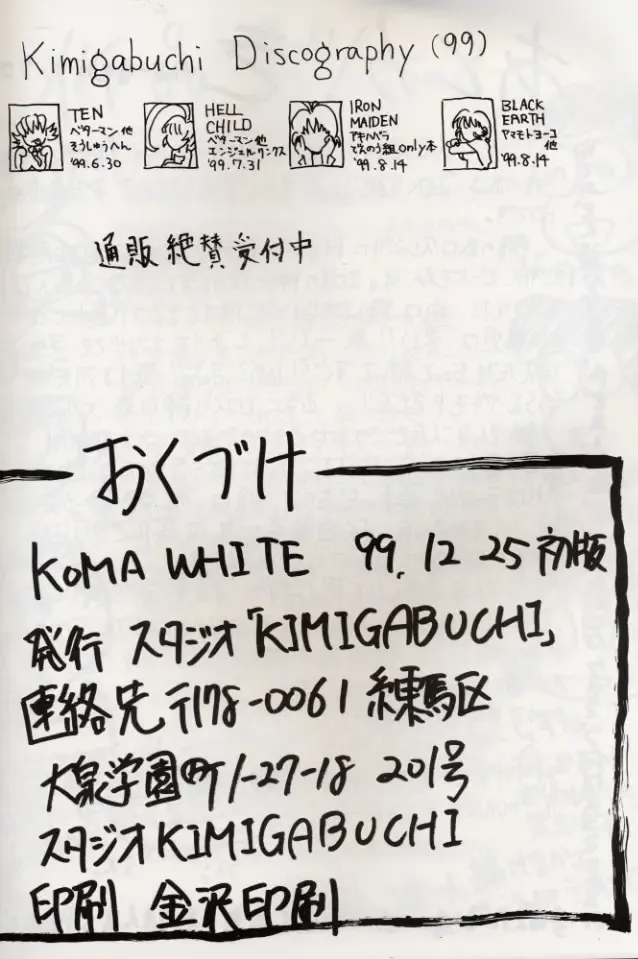 Kimigabuchi Discography (99)
TEN
ベターマン他
そうしゅうへん
'99.6.30
HELL
CHILD
ベターマン他
エンジェルリンクス
'99.7.31
IRON
MAIDEN
アキハバラ
でんのう組only本
'99.8.14
BLACK
EARTH
ヤマモトヨーコ
他
'99.8.14
通販絶賛受付中
おくづけ
KOMA WHITE 99.12 25 初版
発行 スタジオ「KIMIGABUCHI」
連絡先 〒178-0061 練馬区
大泉学園町1-27-18 201号
スタジオKIMIGABUCHI
印刷 金沢印刷